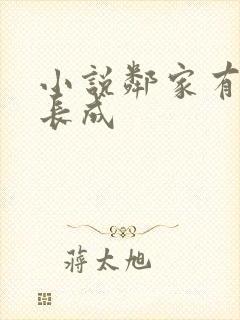 小說鄰家有
長成
蔣太旭